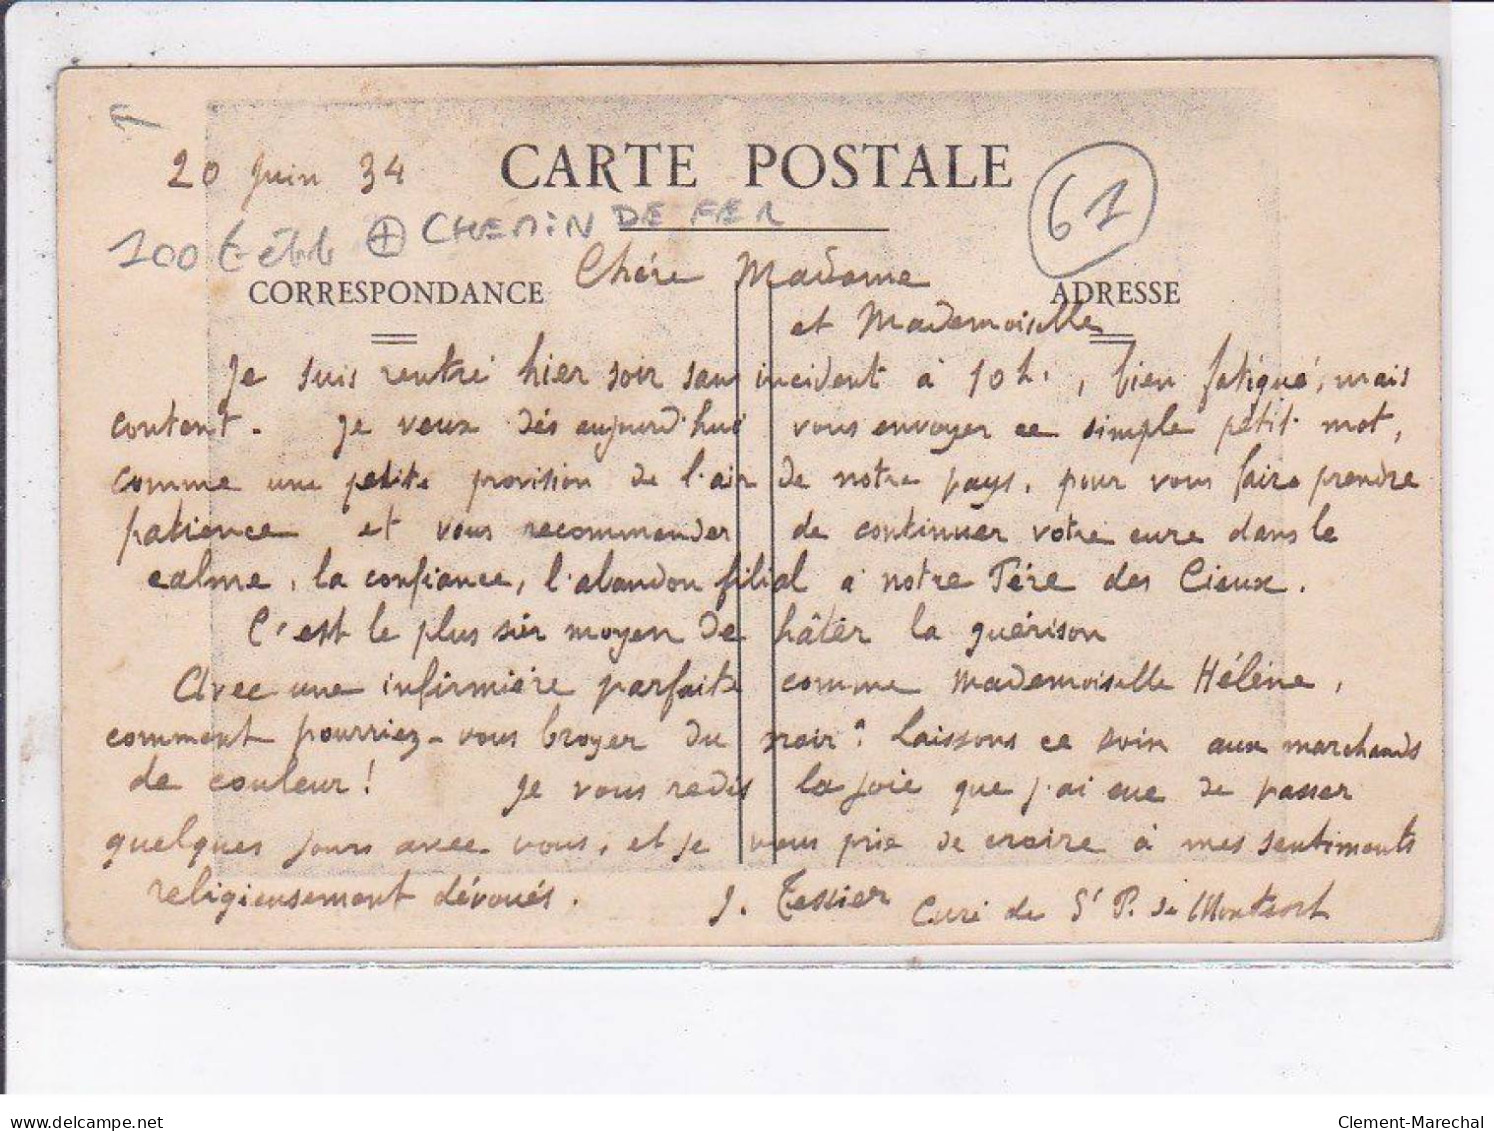 20 Juin 34
CARTE POSTALE
61
100 t. étbb + CHEMIN DE FER
CORRESPONDANCE
ADRESSE
Chère Madame
et Mademoiselle
Je suis rentré hier soir sans incident à 10 h., bien fatigué, mais
content. Je veux dès aujourd'hui vous envoyer ce simple petit mot,
comme une petite provision de l'air de notre pays, pour vous faire prendre
patience et vous recommander de continuer votre cure dans le
calme, la confiance, l'abandon filial à notre Père des Cieux.
C'est le plus sûr moyen de hâter la guérison
Avec une infirmière parfaite comme Mademoiselle Hélène,
comment pourriez-vous broyer du noir? Laissons ce soin aux marchands
de couleur! Je vous redis la joie que j'ai eue de passer
quelques jours avec vous, et je vous prie de croire à mes sentiments
religieusement dévoués. J. Tessier Curé de St P. de Montsort
delcampe.net
Clement-Marechal